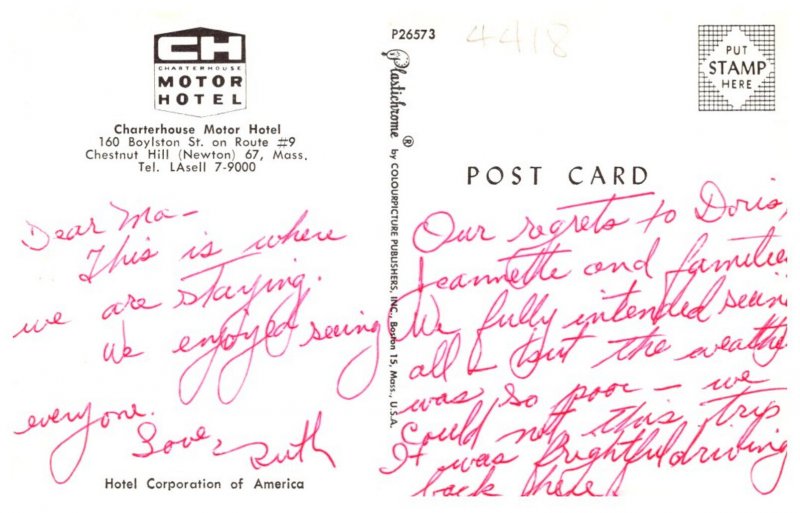 CH
CHARTERHOUSE
MOTOR
HOTEL
Charterhouse Motor Hotel
160 Boylston St. on Route #9
Chestnut Hill (Newton) 67, Mass.
Tel. LAsell 7-9000
Dear Ma-
This is where
we are staying.
We enjoyed seeing
everyone.
Love,
Ruth
Hotel Corporation of America
P26573
4418
Plastichrome ® by COLOURPICTURE PUBLISHERS, INC., Boston 15, Mass., U.S.A.
PUT
STAMP
HERE
POST CARD
Our regrets to Doris,
Jeannette and families
We fully intended seein
all but the weathe
was so poor - we
could not this trip
It was frightful driving
back here